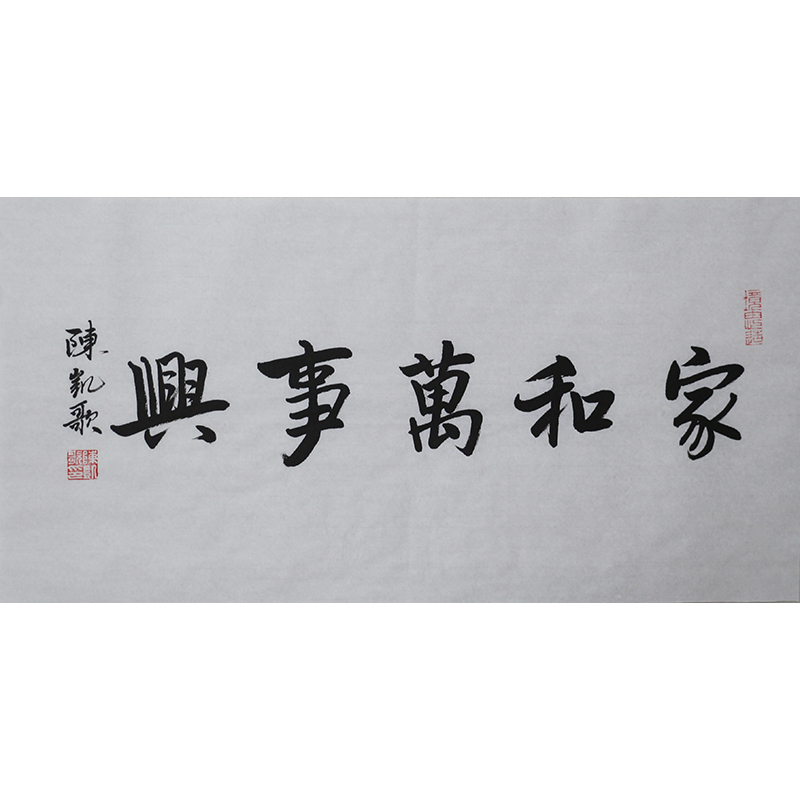 家和萬事興
陳凱歌